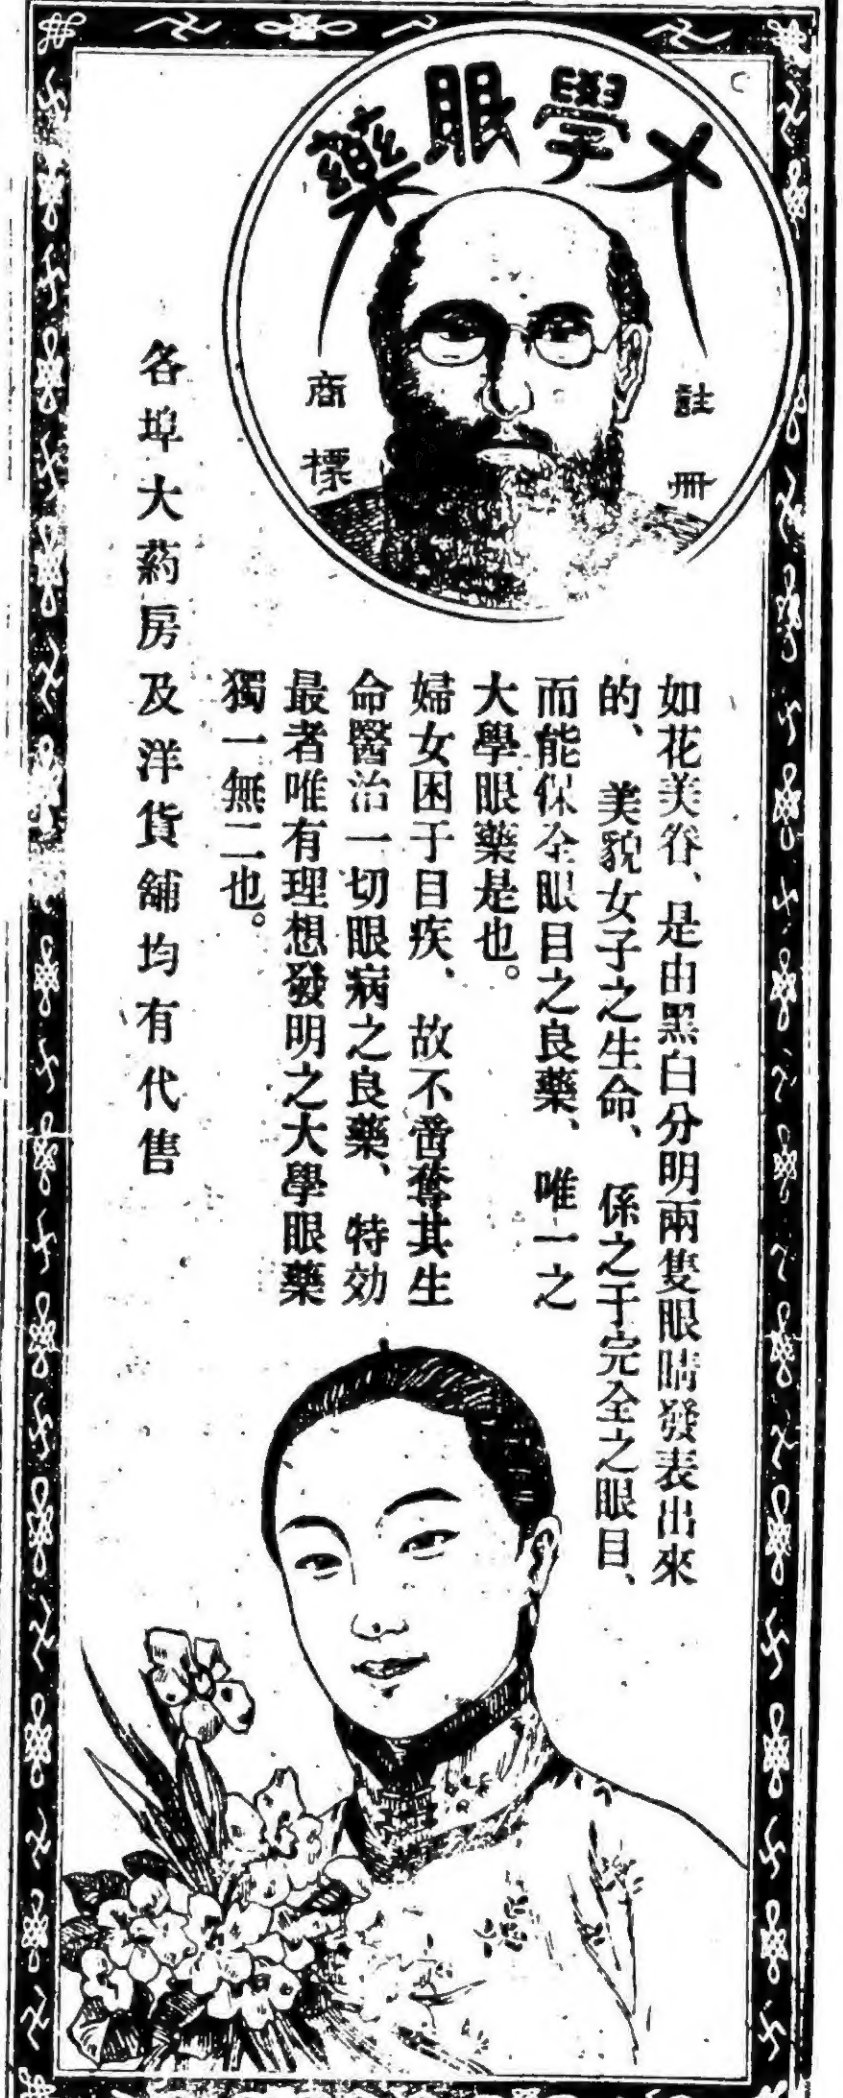 大學眼藥
註冊
商標
如花美眷、是由黑白分明兩隻眼睛發表出來
的、美貌女子之生命、係之于完全之眼目、
而能保全眼目之良藥、唯一之
大學眼藥是也。
婦女困于目疾、故不啻奪其生
命醫治一切眼病之良藥、特効
最者唯有理想發明之大學眼藥
獨一無二也。
各埠大葯房及洋貨舖均有代售